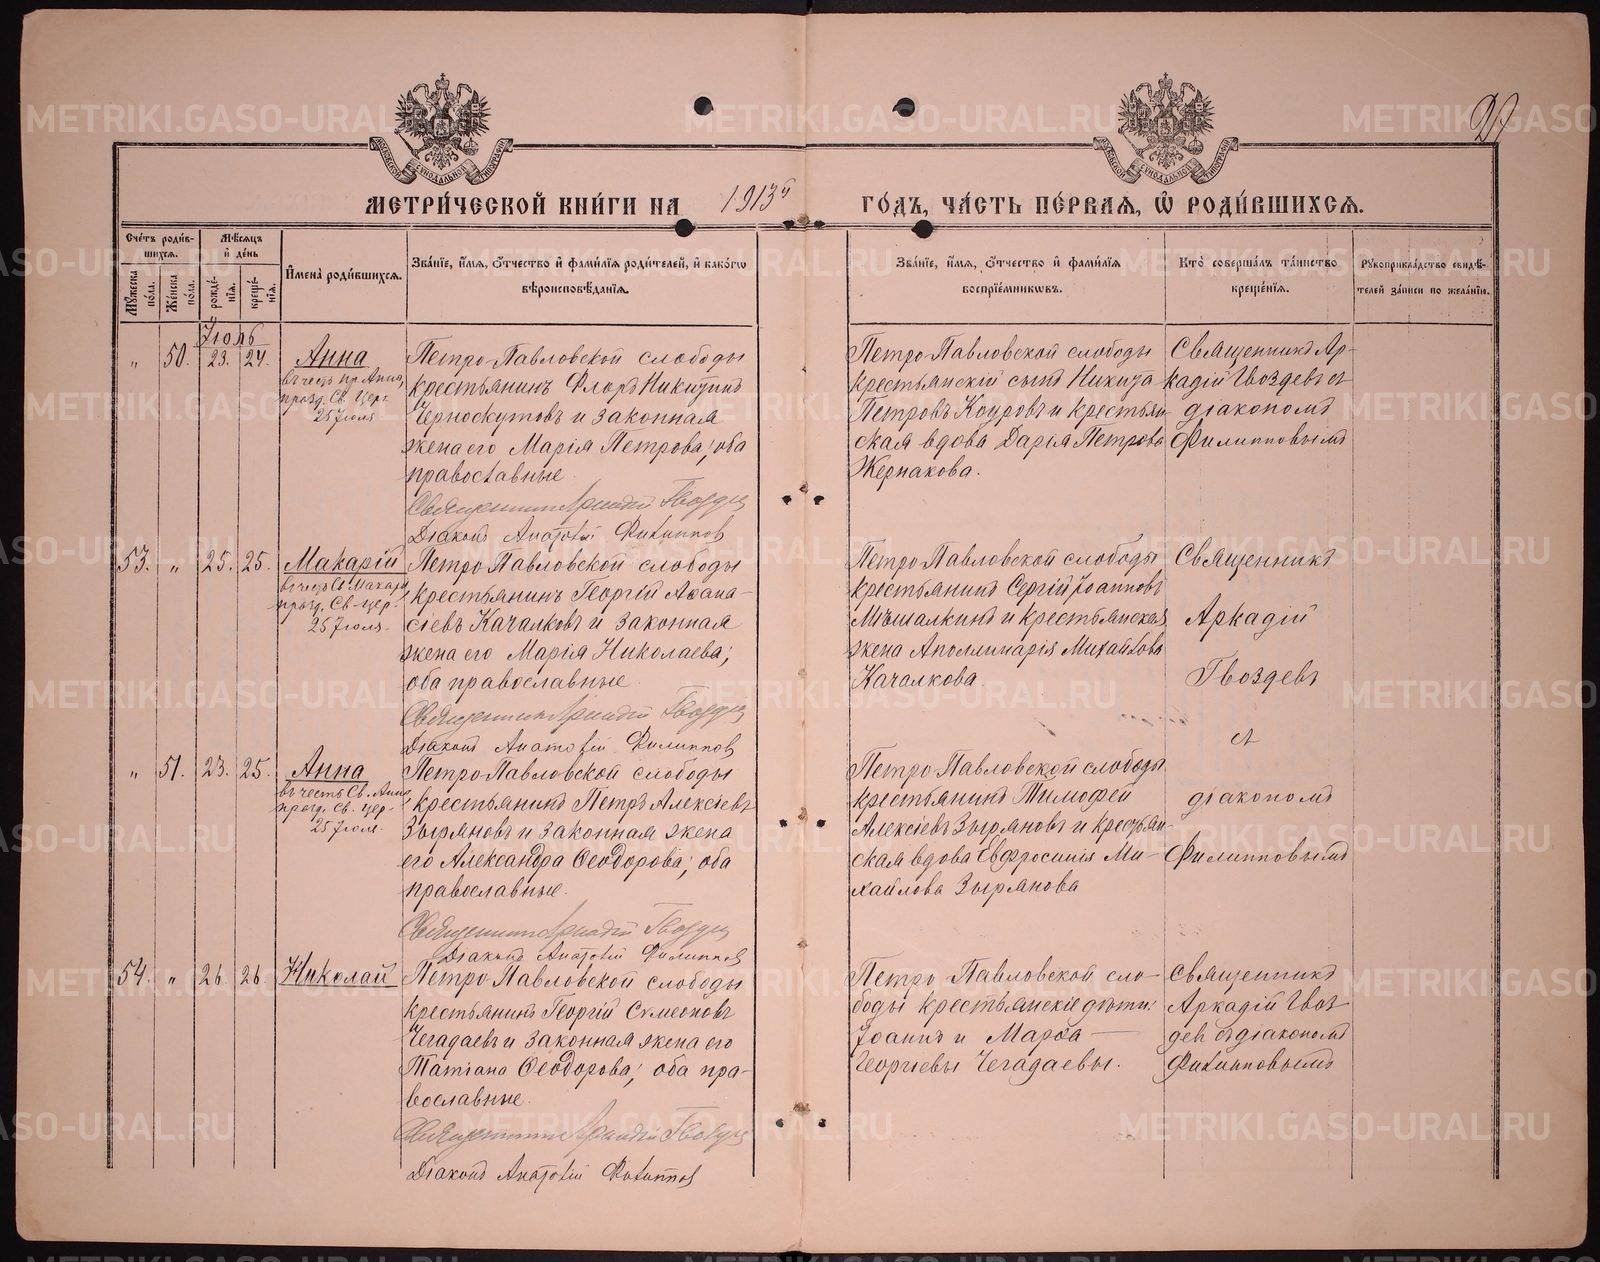 МЕТРИ́ЧЕСКОЙ КНИ́ГИ НА 1913й ГО́ДЪ, ЧА́СТЬ ПЕ́РВАЯ, Ѡ҆ РОДИ́ВШИХСЯ.
Сче́тъ роди́в-
шихся.
Мꙋ́жеска по́ла.
Же́нска по́ла.
Мѣ́сяцъ и҆ де́нь
рожде́-
нїя.
креще́-
нїя.
И҆мена̀ роди́вшихся.
Зва́нїе, и҆́мя, ѻ҆́тчество и҆ фами́лїя роди́телей, и҆ како́гѡ
вѣроисповѣ́данїя.
Зва́нїе, и҆́мя, ѻ҆́тчество и҆ фами́лїя
воспрїе́мникѡвъ.
Кто̀ соверша́лъ та́инство
креще́нїя.
Рꙋкоприкла́дство свидѣ́-
телей за́писи по жела́нїю.
Іюль
„ 50. 23. 24.
Анна
въ честь пр. Анны,
празд. Св. Цер.
25 Іюля.
Петро-Павловской слободы
крестьянинъ Флоръ Никитинъ
Черноскутовъ и законная
жена его Марія Петрова; оба
православные
Священникъ Аркадій Гвоздевъ
Діаконъ Анатолій Филиппов
Петро-Павловской слободы
крестьянскій сынъ Никита
Петровъ Коуровъ и крестьян-
ская вдова Дарія Петрова
Жернакова.
Священникъ Ар-
кадій Гвоздевъ съ
діакономъ
Филипповымъ
53. „ 25. 25.
Макарій
въ честь Св. Макарія
празд. Св. Цер.
25 Іюля.
Петро-Павловской слободы
крестьянинъ Георгій Аѳана-
сіевъ Качалковъ и законная
жена его Марія Николаева;
оба православные
Священникъ Аркадій Гвоздевъ
Діаконъ Анатолій Филиппов
Петро-Павловской слободы
крестьянинъ Сергій Іоанновъ
Мышалкинъ и крестьянская
жена Аполлинарія Михайлова
Качалкова.
Священникъ
Аркадій
Гвоздевъ
съ
діакономъ
Филипповымъ
„ 51. 23. 25.
Анна
въ честь Св. Анны
празд. Св. Цер.
25 Іюля.
Петро-Павловской слободы
крестьянинъ Петръ Алексіевъ
Зыряновъ и законная жена
его Александра Ѳеодорова; оба
православные.
Священникъ Аркадій Гвоздевъ
Діаконъ Анатолій Филиппов
Петро-Павловской слободы
крестьянинъ Тимофей
Алексіевъ Зыряновъ и крестьян-
ская вдова Евфросинія Ми-
хайлова Зырянова
54. „ 26. 26.
Николай
Петро-Павловской слободы
крестьянинъ Георгій Сумеоновъ
Чегадаевъ и законная жена его
Татіана Ѳеодорова; оба пра-
вославные.
Священникъ Аркадій Гвоздевъ
Діаконъ Анатолій Филиппов
Петро-Павловской сло-
боды крестьянскіе дѣти:
Іоаннъ и Марѳа
Георгіевы Чегадаевы.
Священникъ
Аркадій Гвоз-
девъ съ діакономъ
Филипповымъ
METRIKI.GASO-URAL.RU